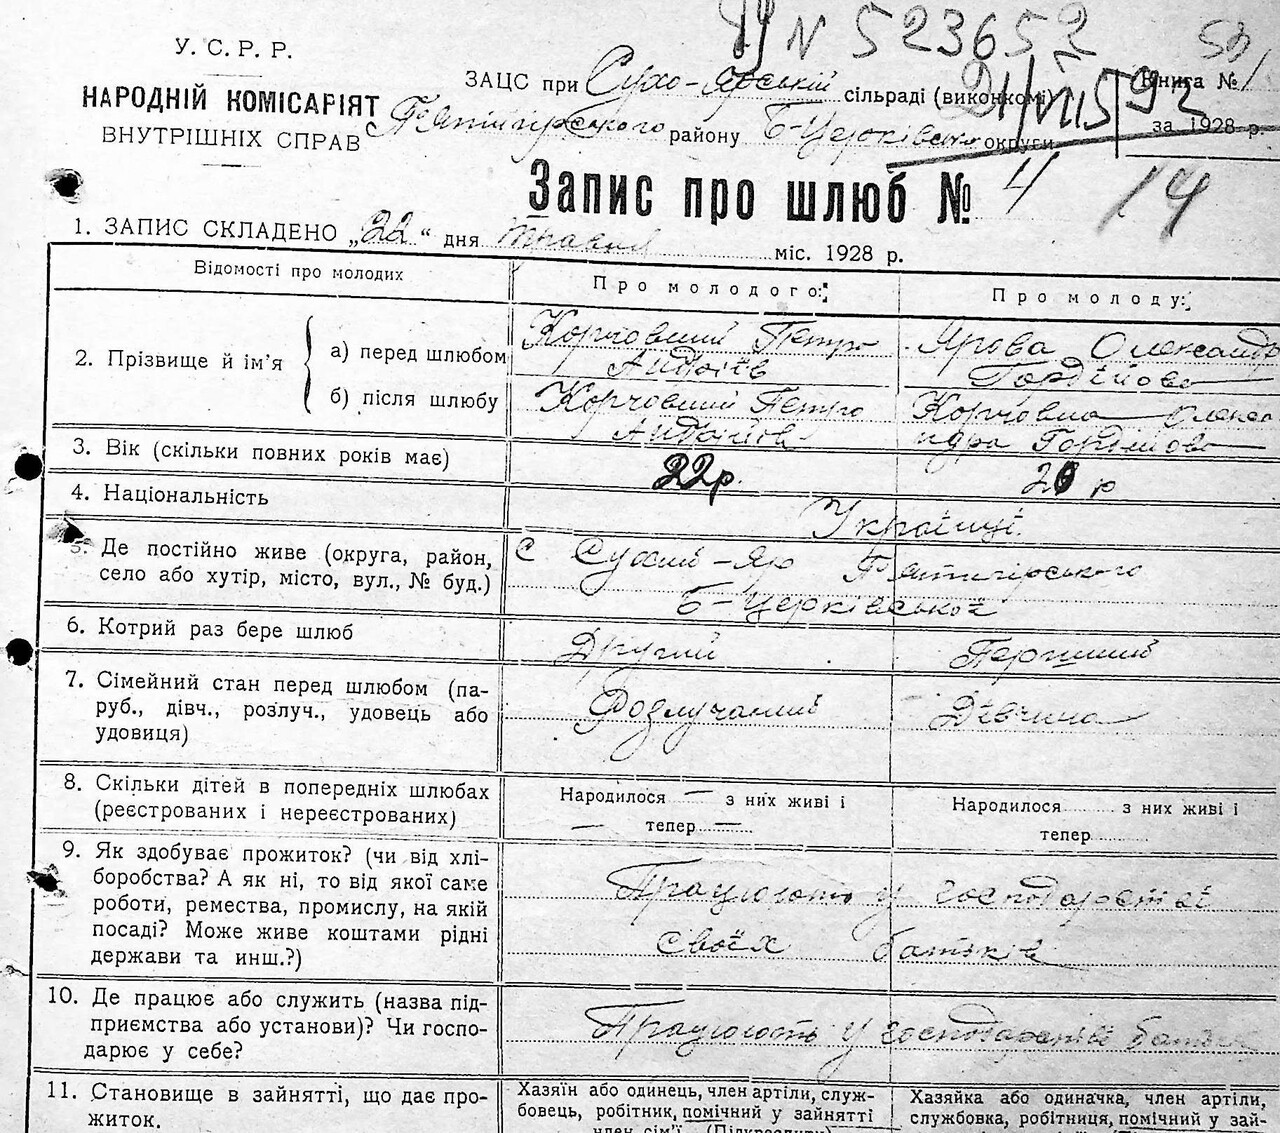 N 523652
У. С. Р. Р.
НАРОДНІЙ КОМІСАРІЯТ
ВНУТРІШНІХ СПРАВ
ЗАЦС при Сухо-Ярській сільраді (виконкомі)
Книга №
Пятигірського району Б-Церківської округи
за 1928 р.
Запис про шлюб № 4
14
1. ЗАПИС СКЛАДЕНО „22“ дня травня міс. 1928 р.
Відомості про молодих
Про молодого:
Про молоду:
2. Прізвище й ім'я
а) перед шлюбом
Корчовний Петро
Андоніїв
Ярова Олександр
Гордійовна
б) після шлюбу
Корчовний Петро
Корчовна Олекса
ндра Гордійовна
3. Вік (скільки повних років має)
22 р.
20 р
4. Національність
Українці.
5. Де постійно живе (округа, район,
село або хутір, місто, вул., № буд.)
с Сухий-Яр Пятигірського
Б-Церківської
6. Котрий раз бере шлюб
Другий
Перший
7. Сімейний стан перед шлюбом (па-
руб., дівч., розлуч., удовець або
удовиця)
Розлучений
Дівчина
8. Скільки дітей в попередніх шлюбах
(реєстрованих і нереєстрованих)
Народилося — з них живі і
— тепер —
Народилося з них живі і
тепер
9. Як здобуває прожиток? (чи від хлі-
боробства? А як ні, то від якої саме
роботи, ремества, промислу, на якій
посаді? Може живе коштами рідні
держави та инш.?)
Працюють у господарстві
своїх батьків
10. Де працює або служить (назва під-
приємства або установи)? Чи госпо-
дарює у себе?
Працюють у господарстві батьків
11. Становище в зайнятті, що дає про-
житок.
Хазяїн або одинець, член артіли, служ-
бовець, робітник, помічний у зайнятті
член сім'ї. (Підкреслити)
Хазяйка або одиначка, член артіли,
службовка, робітниця, помічний у зай-